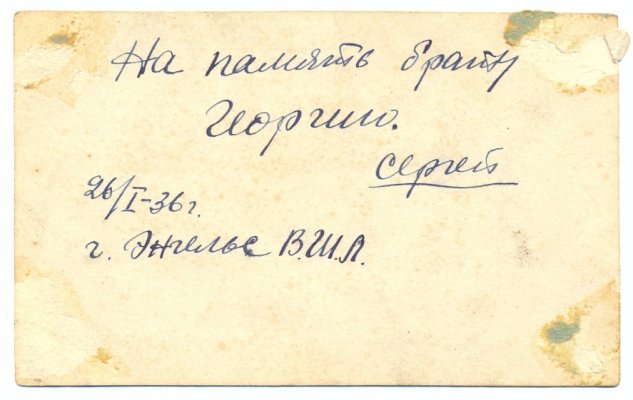 На память брату
Георгию.
Сергей
26/I-36 г.
г. Энгельс В.Ш.Л.